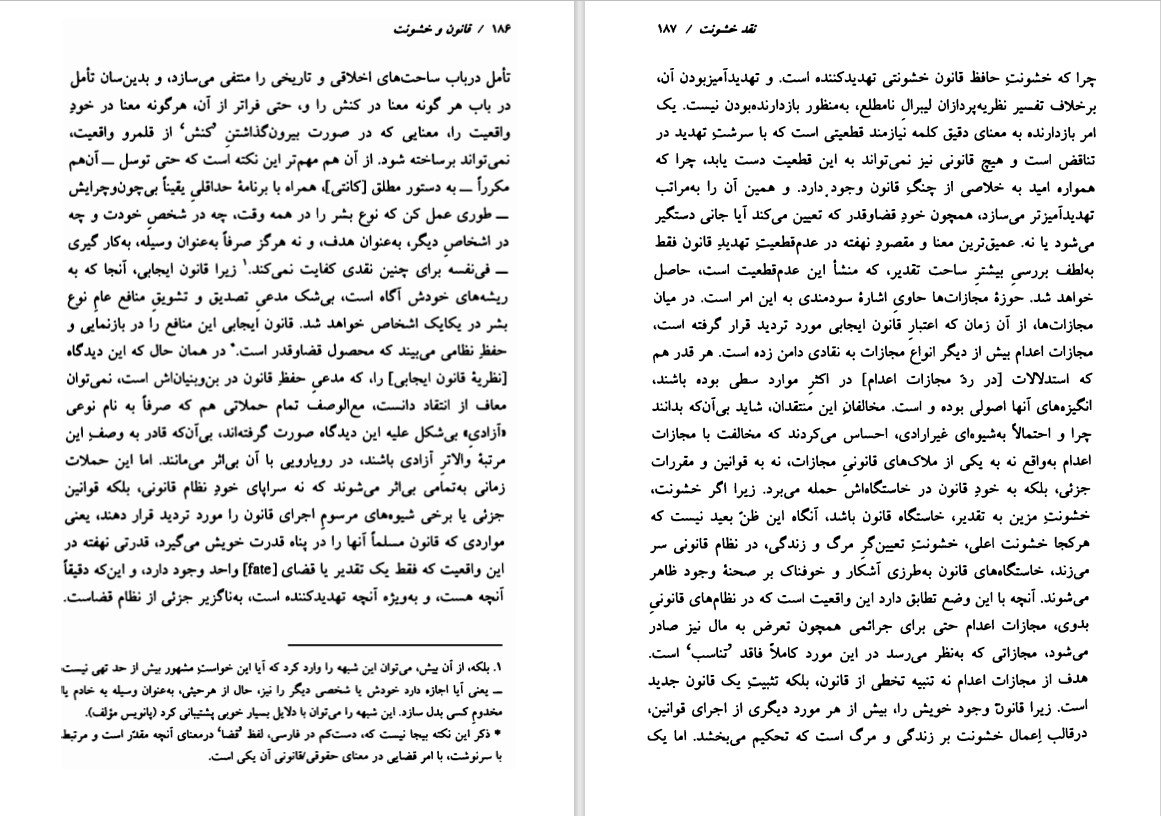 ۱۸۶ / قانون و خشونت
تأمل درباب ساحت‌های اخلاقی و تاریخی را منتفی می‌سازد، و بدین‌سان تأمل
در باب هر گونه معنا در کنش را و، حتی فراتر از آن، هرگونه معنا در خودِ
واقعیت را، معنایی که در صورت بیرون‌گذاشتنِ ’کنش‘ از قلمرو واقعیت،
نمی‌تواند برساخته شود. از آن هم مهم‌تر این نکته است که حتی توسل ــ آن‌هم
مکرراً ــ به دستور مطلق [کانتی]، همراه با برنامهٔ حداقلیِ یقیناً بی‌چون‌وچرایش
ــ طوری عمل کن که نوع بشر را در همه وقت، چه در شخصِ خودت و چه
در اشخاصِ دیگر، به‌عنوان هدف، و نه هرگز صرفاً به‌عنوان وسیله، به‌کار گیری
ــ فی‌نفسه برای چنین نقدی کفایت نمی‌کند.۱ زیرا قانون ایجابی، آنجا که به
ریشه‌های خودش آگاه است، بی‌شک مدعیِ تصدیق و تشویقِ منافع عامِ نوع
بشر در یکایک اشخاص خواهد شد. قانون ایجابی این منافع را در بازنمایی و
حفظِ نظامی می‌بیند که محصول قضاوقدر است.* در همان حال که این دیدگاه
[نظریهٔ قانون ایجابی] را، که مدعیِ حفظِ قانون در بن‌وبنیان‌اش است، نمی‌توان
معاف از انتقاد دانست، مع‌الوصف تمام حملاتی هم که صرفاً به نام نوعی
«آزادی» بی‌شکل علیه این دیدگاه صورت گرفته‌اند، بی‌آن‌که قادر به وصفِ این
مرتبهٔ والاترِ آزادی باشند، در رویارویی با آن بی‌اثر می‌مانند. اما این حملات
زمانی به‌تمامی بی‌اثر می‌شوند که نه سراپای خودِ نظام قانونی، بلکه قوانین
جزئی یا برخی شیوه‌های مرسومِ اجرای قانون را مورد تردید قرار دهند، یعنی
مواردی که قانون مسلماً آنها را در پناه قدرت خویش می‌گیرد، قدرتی نهفته در
این واقعیت که فقط یک تقدیر یا قضای [fate] واحد وجود دارد، و این‌که دقیقاً
آنچه هست، و به‌ویژه آنچه تهدیدکننده است، به‌ناگزیر جزئی از نظام قضاست.
۱. بلکه، از آن بیش، می‌توان این شبهه را وارد کرد که آیا این خواستِ مشهور بیش از حد تهی نیست
ــ یعنی آیا اجازه دارد خودش یا شخصی دیگر را نیز، حال از هرحیثی، به‌عنوان وسیله به خادم یا
مخدومِ کسی بدل سازد. این شبهه را می‌توان با دلایل بسیار خوبی پشتیبانی کرد (پانویس مؤلف).
* ذکر این نکته بیجا نیست که، دست‌کم در فارسی، لفظ ’قضا‘ درمعنای آنچه مقدّر است و مرتبط
با سرنوشت، با امر قضایی در معنای حقوقی/قانونی آن یکی است.
نقد خشونت / ۱۸۷
چرا که خشونتِ حافظ قانون خشونتی تهدیدکننده است. و تهدیدآمیزبودن آن،
برخلاف تفسیر نظریه‌پردازان لیبرالِ نامطلع، به‌منظور بازدارنده‌بودن نیست. یک
امر بازدارنده به معنای دقیق کلمه نیازمند قطعیتی است که با سرشتِ تهدید در
تناقض است و هیچ قانونی نیز نمی‌تواند به این قطعیت دست یابد، چرا که
همواره امید به خلاصی از چنگِ قانون وجود دارد. و همین آن را به‌مراتب
تهدیدآمیزتر می‌سازد، همچون خودِ قضاوقدر که تعیین می‌کند آیا جانی دستگیر
می‌شود یا نه. عمیق‌ترین معنا و مقصودِ نهفته در عدم‌قطعیتِ تهدیدِ قانون فقط
به‌لطف بررسیِ بیشترِ ساحت تقدیر، که منشأ این عدم‌قطعیت است، حاصل
خواهد شد. حوزهٔ مجازات‌ها حاویِ اشارهٔ سودمندی به این امر است. در میان
مجازات‌ها، از آن زمان که اعتبارِ قانون ایجابی مورد تردید قرار گرفته است،
مجازات اعدام بیش از دیگر انواعِ مجازات به نقادی دامن زده است. هر قدر هم
که استدلالات [در ردّ مجازات اعدام] در اکثرِ موارد سطی بوده باشند،
انگیزه‌های آنها اصولی بوده و است. مخالفانِ این منتقدان، شاید بی‌آن‌که بدانند
چرا و احتمالاً به‌شیوه‌ای غیرارادی، احساس می‌کردند که مخالفت با مجازات
اعدام به‌واقع نه به یکی از ملاک‌های قانونیِ مجازات، نه به قوانین و مقررات
جزئی، بلکه به خودِ قانون در خاستگاه‌اش حمله می‌برد. زیرا اگر خشونت،
خشونتِ مزین به تقدیر، خاستگاه قانون باشد، آنگاه این ظنّ بعید نیست که
هرکجا خشونت اعلی، خشونتِ تعیین‌گرِ مرگ و زندگی، در نظام قانونی سر
می‌زند، خاستگاه‌های قانون به‌طرزی آشکار و خوفناک بر صحنهٔ وجود ظاهر
می‌شوند. آنچه با این وضع تطابق دارد این واقعیت است که در نظام‌های قانونیِ
بدوی، مجازات اعدام حتی برای جرائمی همچون تعرض به مال نیز صادر
می‌شود، مجازاتی که به‌نظر می‌رسد در این مورد کاملاً فاقد ’تناسب‘ است.
هدف از مجازات اعدام نه تنبیه تخطی از قانون، بلکه تثبیتِ یک قانون جدید
است. زیرا قانونّ وجود خویش را، بیش از هر مورد دیگری از اجرای قوانین،
درقالب اِعمال خشونت بر زندگی و مرگ است که تحکیم می‌بخشد. اما یک